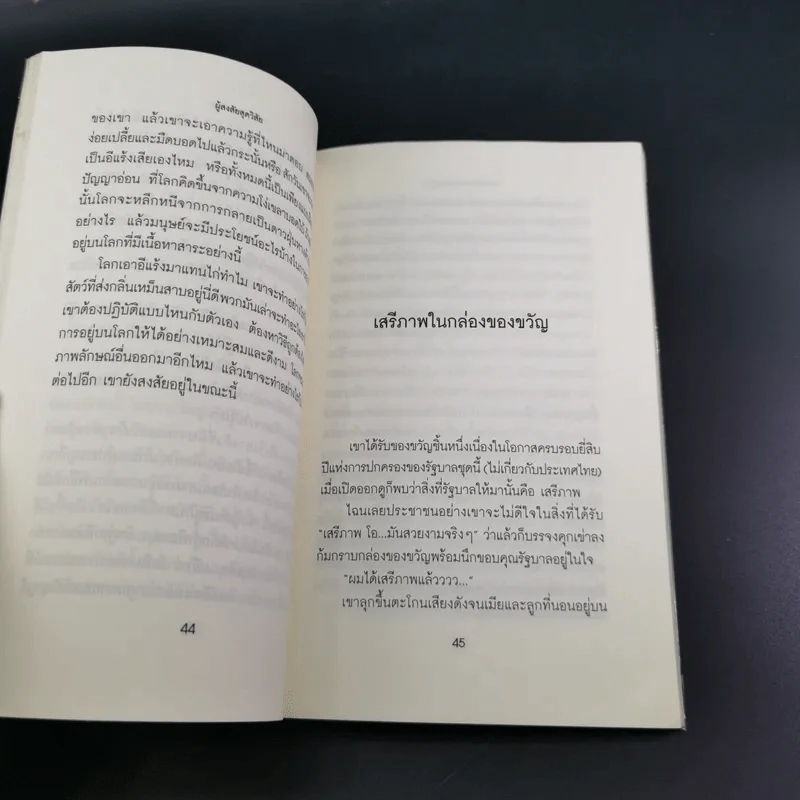 ผู้สงสัยสุดวิสัย
ของเขา แล้วเขาจะเอาความรู้ที่ไหนมาตอบ
ง่อยเปลี้ยและมืดบอดไปแล้วกระนั้นหรือ สักวันเขา
เป็นอีแร้งเสียเองไหม หรือทั้งหมดนี้เป็นเพียง
ปัญญาอ่อน ที่โลกคิดขึ้นจากความโง่เขลาเบา
นั้นโลกจะหลีกหนีจากการกลายเป็นดาวฝุ่น
อย่างไร แล้วมนุษย์จะมีประโยชน์อะไรบ้างในการ
อยู่บนโลกที่มีเนื้อหาสาระอย่างนี้
โลกเอาอีแร้งมาแทนไก่ทำไม เขาจะทำอย่างไร
สัตว์ที่ส่งกลิ่นเหม็นสาบอยู่นี่ดี พวกมันเล่าจะทำอะไร
เขาต้องปฏิบัติแบบไหนกับตัวเอง ต้องหาวิธีถูกต้อง
การอยู่บนโลกให้ได้อย่างเหมาะสมและดีงาม โลก
ภาพลักษณ์อื่นออกมาอีกไหม แล้วเขาจะทำอย่างไร
ต่อไปอีก เขายังสงสัยอยู่ในขณะนี้
44
เสรีภาพในกล่องของขวัญ
เขาได้รับของขวัญชิ้นหนึ่งเนื่องในโอกาสครบรอบยี่สิบ
ปีแห่งการปกครองของรัฐบาลชุดนี้ (ไม่เกี่ยวกับประเทศไทย)
เมื่อเปิดออกดูก็พบว่าสิ่งที่รัฐบาลให้มานั้นคือ เสรีภาพ
ไฉนเลยประชาชนอย่างเขาจะไม่ดีใจในสิ่งที่ได้รับ
“เสรีภาพ โอ...มันสวยงามจริงๆ” ว่าแล้วก็บรรจงคุกเข่าลง
ก้มกราบกล่องของขวัญพร้อมนึกขอบคุณรัฐบาลอยู่ในใจ
“ผมได้เสรีภาพแล้วววว...”
เขาลุกขึ้นตะโกนเสียงดังจนเมียและลูกที่นอนอยู่บน
45